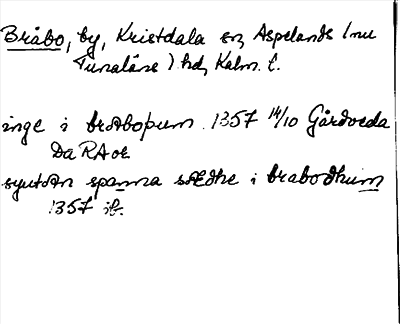 Bråbo, by, Kristdala sn, Aspelands (nu
Tunaläns) hd, Kalm. l.
inge i braboþum 1357 14/10 Gårdveda
Da RA or
syutan spanna sædhe i brabodhum
1357 ib.